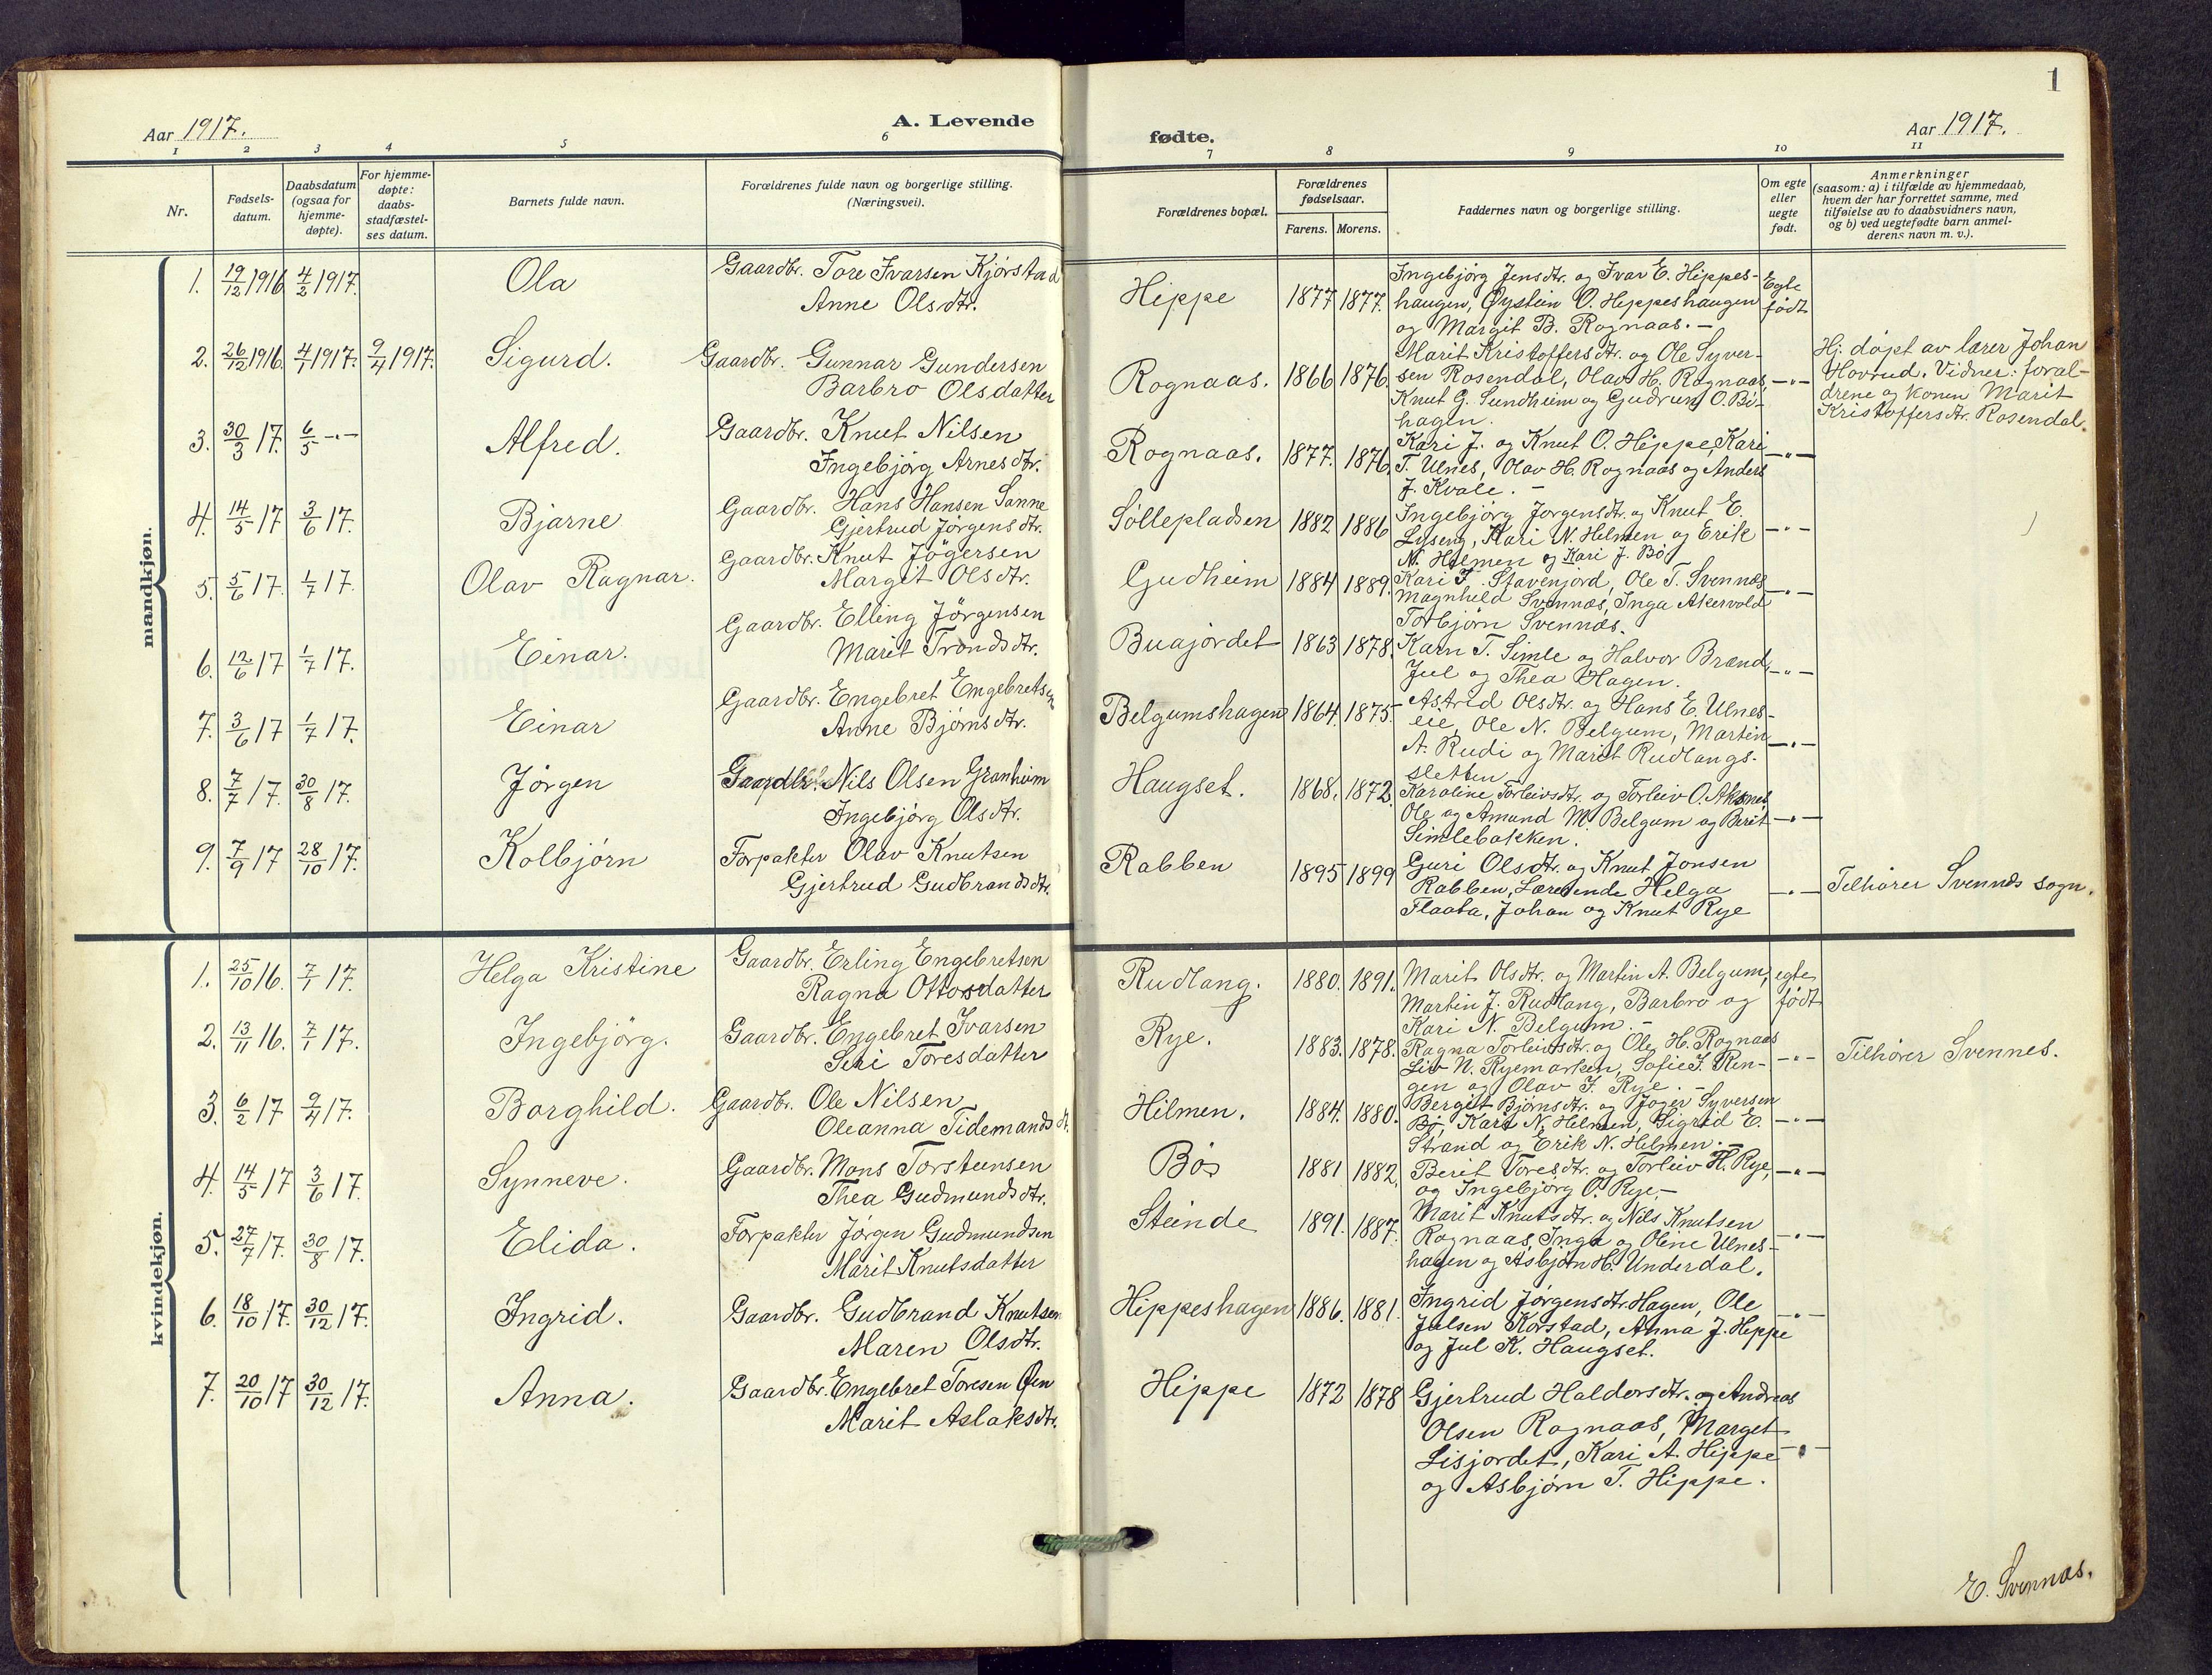 1
Aar 1917.
A. Levende
fødte.
Aar 1917.
1 2 3 4 5 6 7 8 9 10 11
Nr.
Fødsels-
datum.
Daabsdatum
(ogsaa for
hjemme-
døpte).
For hjemme-
døpte:
daabs-
stadfæstel-
ses datum.
Barnets fulde navn.
Forældrenes fulde navn og borgerlige stilling.
(Næringsvei).
Forældrenes bopæl.
Forældrenes
fødselsaar.
Farens. Morens.
Faddernes navn og borgerlige stilling.
Om egte
eller
uegte
født.
Anmerkninger
(saasom: a) i tilfælde av hjemmedaab,
hvem der har forrettet samme, med
tilføielse av to daabsvidners navn,
og b) ved uegtefødte barn anmel-
derens navn m. v.).
mandkjøn.
1. 19/12 1916 4/2 1917. Ola
Gaardbr. Tore Ivarsen Kjørstad
Anne Olsdtr.
Hippe 1877 1877.
Ingebjørg Jensdtr. og Ivar E. Hippes-
haugen, Øystein O. Hippeshaugen
og Margit B. Rognaas. -
Egte
født
2. 26/12 1916. 4/1 1917. 9/4 1917. Sigurd.
Gaardbr. Gunnar Gundersen
Barbro Olsdatter
Rognaas. 1866 1876.
Marit Kristoffersdtr. og Ole Syver-
sen Rosendal, Olav H. Rognaas,
Knut G. Sundheim og Gudrun O. Bi-
hagen.
-"-
Hj. døpt av lærer Johan
Hovrud. Vidner: foræl-
drene og konen Marit
Kristoffersdtr. Rosendal.
3. 30/3 17. 6/5 -"- Alfred.
Gaardbr. Knut Nilsen
Ingebjørg Arnesdtr.
Rognaas. 1877. 1876.
Kari J. og Knut O. Hippe, Kari
T. Ulnes, Olav H. Rognaas og Anders
J. Kvale. -
-"-
4. 14/5 17 3/6 17. Bjarne
Gaardbr. Hans Hansen Sanne
Gjertrud Jørgensdtr.
Søllepladsen 1882 1886
Ingebjørg Jørgensdtr. og Knut E.
Lyseng, Kari N. Helmen og Erik
N. Helmen og Kari J. Bø
-"-
5. 5/6 17. 1/7 17. Olav Ragnar.
Gaardbr. Knut Jøgersen
Margit Olsdtr.
Gudheim 1884 1889.
Kari T. Stavenjord, Ole T. Svennæs
Magnhild Svennæs, Inga Akervold
Torbjørn Svennæs.
-"-
6. 12/6 17 1/7 17. Einar.
Gaardbr. Elling Jørgensen
Marit Trondsdtr.
Buajordet 1863 1878.
Karn T. Simle og Halvor Brænd,
Jul og Thea Hagen.
-"-
7. 3/6 17 1/7 17. Einar
Gaardbr. Engebret Engebretsen
Anne Bjørnsdtr.
Belgumshagen 1864. 1875.
Astrid Olsdtr. og Hans E. Ulnes-
eie, Ole N. Belgum, Martin
A. Rudi og Marit Rudlangs-
sletten
-"-
8. 7/7 17. 30/8 17. Jørgen
Gaardbr. Nils Olsen Granheim
Ingebjørg Olsdtr.
Haugset. 1868. 1872.
Karoline Torleivsdtr. og Torleiv O. Aksnes
Ole og Amund M. Belgum og Berit
Simlebakken.
-"-
9. 7/9 17 28/10 17. Kolbjørn
Forpakter Olav Knutsen
Gjertrud Gudbrandsdtr.
Rabben 1895 1899
Guri Olsdtr. og Knut Jonsen
Rabben, Lærerinde Helga
Flaata, Johan og Knut Rye
-"-
Tilhører Svennes sogn.
kvindekjøn.
1. 25/10 16. 7/1 17. Helga Kristine
Gaardbr. Erling Engebretsen
Ragna Ottosdatter
Rudlang. 1880. 1891.
Marit Olsdtr. og Martin A. Belgum,
Martin J. Rudlang, Barbro og
Kari N. Belgum. -
egte
født
2. 13/11 16. 7/1 17. Ingebjörg.
Gaardbr. Engebret Ivarsen
Siri Toresdatter
Rye. 1883. 1878.
Ragna Torleivsdtr. og Ole H. Rognaas
Liv N. Ryemarken, Sofie J. Rin-
gen og Olav J. Rye. -
-"-
Tilhører Svennes.
3. 6/2 17 9/4 17. Borghild.
Gaardbr. Ole Nilsen
Oleanna Tidemandsdt.
Hilmen. 1884. 1880.
Bergit Bjørnsdtr. og Jøger Syversen
Bø, Kari N. Helmen, Sigrid E.
Strand og Erik N. Helmen. -
-"-
4. 14/5 17 3/6 17. Synneve.
Gaardbr. Mons Torsteinsen
Thea Gudmundsdtr.
Bø 1881 1882.
Berit Toresdtr. og Torleiv H. Rye,
og Ingebjørg O. Rye, -
-"-
5. 27/7 17. 30/8 17. Elida.
Forpakter Jørgen Gudmundsen
Marit Knutsdatter
Steinde 1891. 1887.
Marit Knutsdtr. og Nils Knutsen
Rognaas, Inga og Oline Ulnes-
hagen og Asbjørn H. Underdal.
-"-
6. 18/10 17. 30/12 17. Ingrid.
Gaardbr. Gudbrand Knutsen
Maren Olsdtr.
Hippeshagen 1886. 1881.
Ingrid Jørgensdtr. Hagen, Ole
Julsen Korstad, Anna J. Hippe
og Jul K. Haugset.
-"-
7. 20/10 17 30/12 17. Anna.
Gaardbr. Engebret Toresen Øen
Marit Aslaksdtr.
Hippe 1872 1878
Gjertrud Haldorsdtr. og Andreas
Olsen Rognaas, Marget
Lisjordet, Kari A. Hippe
og Asbjørn T. Hippe.
-"-
E. Svennæs.